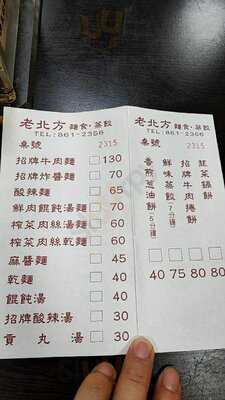 老北方 麵食·蒸餃
TEL:861-2356
桌號 2315
招牌牛肉麵 □ 130
招牌炸醬麵 □ 70
酸辣麵 □ 65
鮮肉餛飩湯麵 □ 70
榨菜肉絲湯麵 □ 60
榨菜肉絲乾麵 □ 60
麻醬麵 □ 45
乾麵 □ 40
餛飩湯 □ 40
招牌酸辣湯 □ 30
貢丸湯 □ 30
老北方 麵食·蒸餃
TEL:861-2356
桌號 2315
韭菜鍋餅 □ 80
招牌牛肉捲餅 □ 80
鮮味蒸餃(7分鐘) □ 75
香煎蔥油餅(5分鐘) □ 40